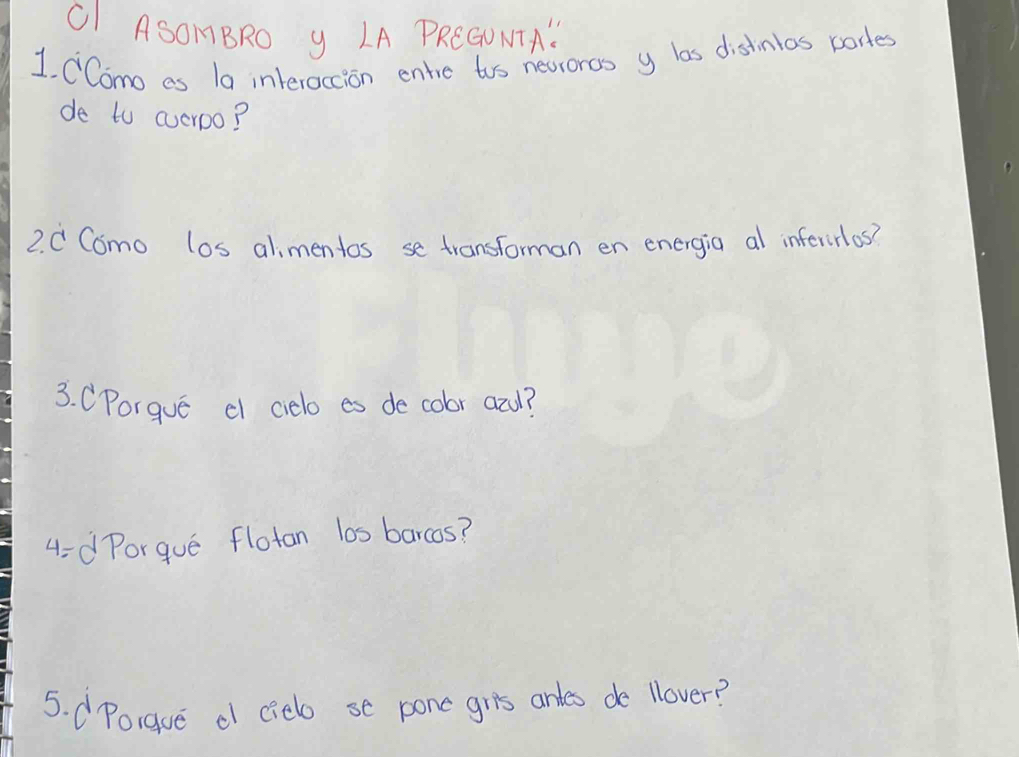 el ASOMBRO y LA PREGUNTA:"
1. ¿Cómo es la interacción entre tus neuronas y las distintas partes
de tu cuerpo?
2. ¿Cómo los alimentos se transforman en energía al inferirlos?
3. ¿Porqué el cielo es de color azul?
4= ¿Por qué flotan los barcos?
5. ¿Porqué el cielo se pone gris antes de llover?